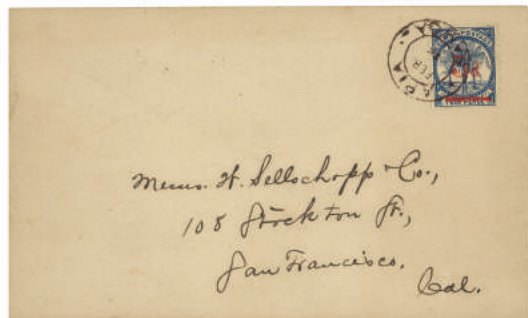 Messrs. W. Sellschopp & Co.,
108 Stockton St.,
San Francisco,
Cal.